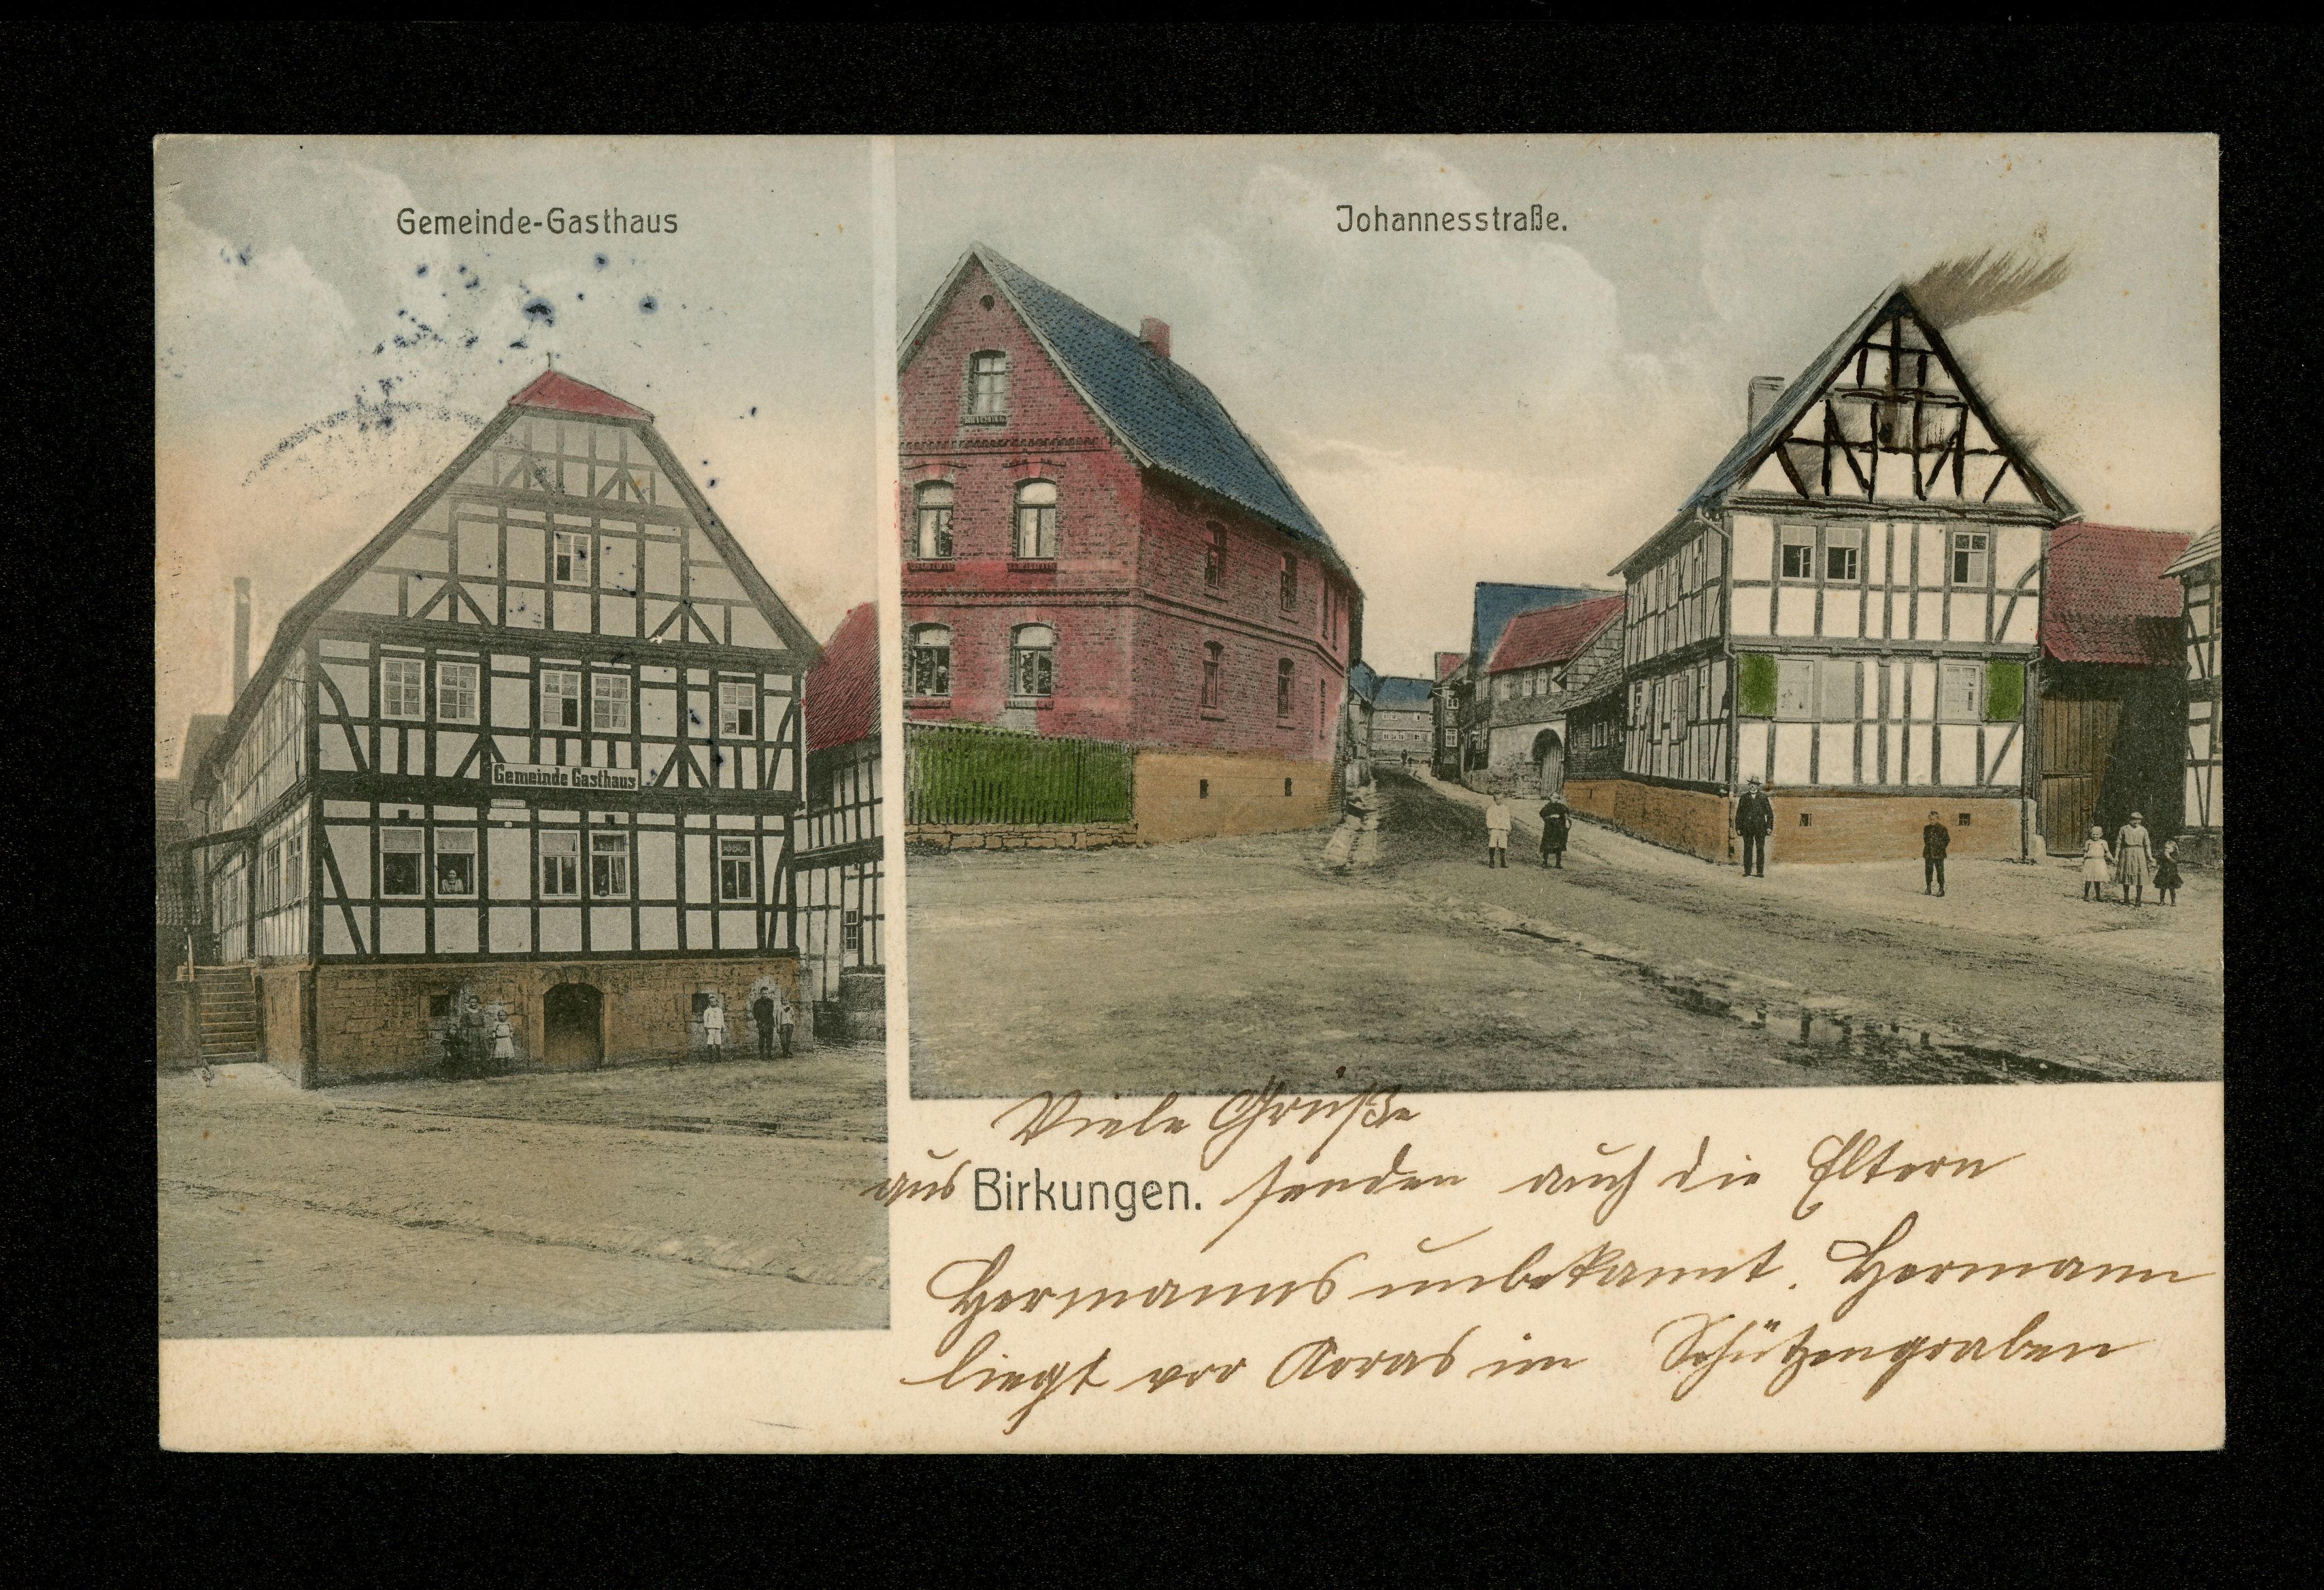 Gemeinde-Gasthaus
Johannesstraße.
Gemeinde Gasthaus
Viele Grüße
aus Birkungen. senden auch die Eltern
Hermanns unbekannt. Hermann
liegt vor Arras im Schützengraben